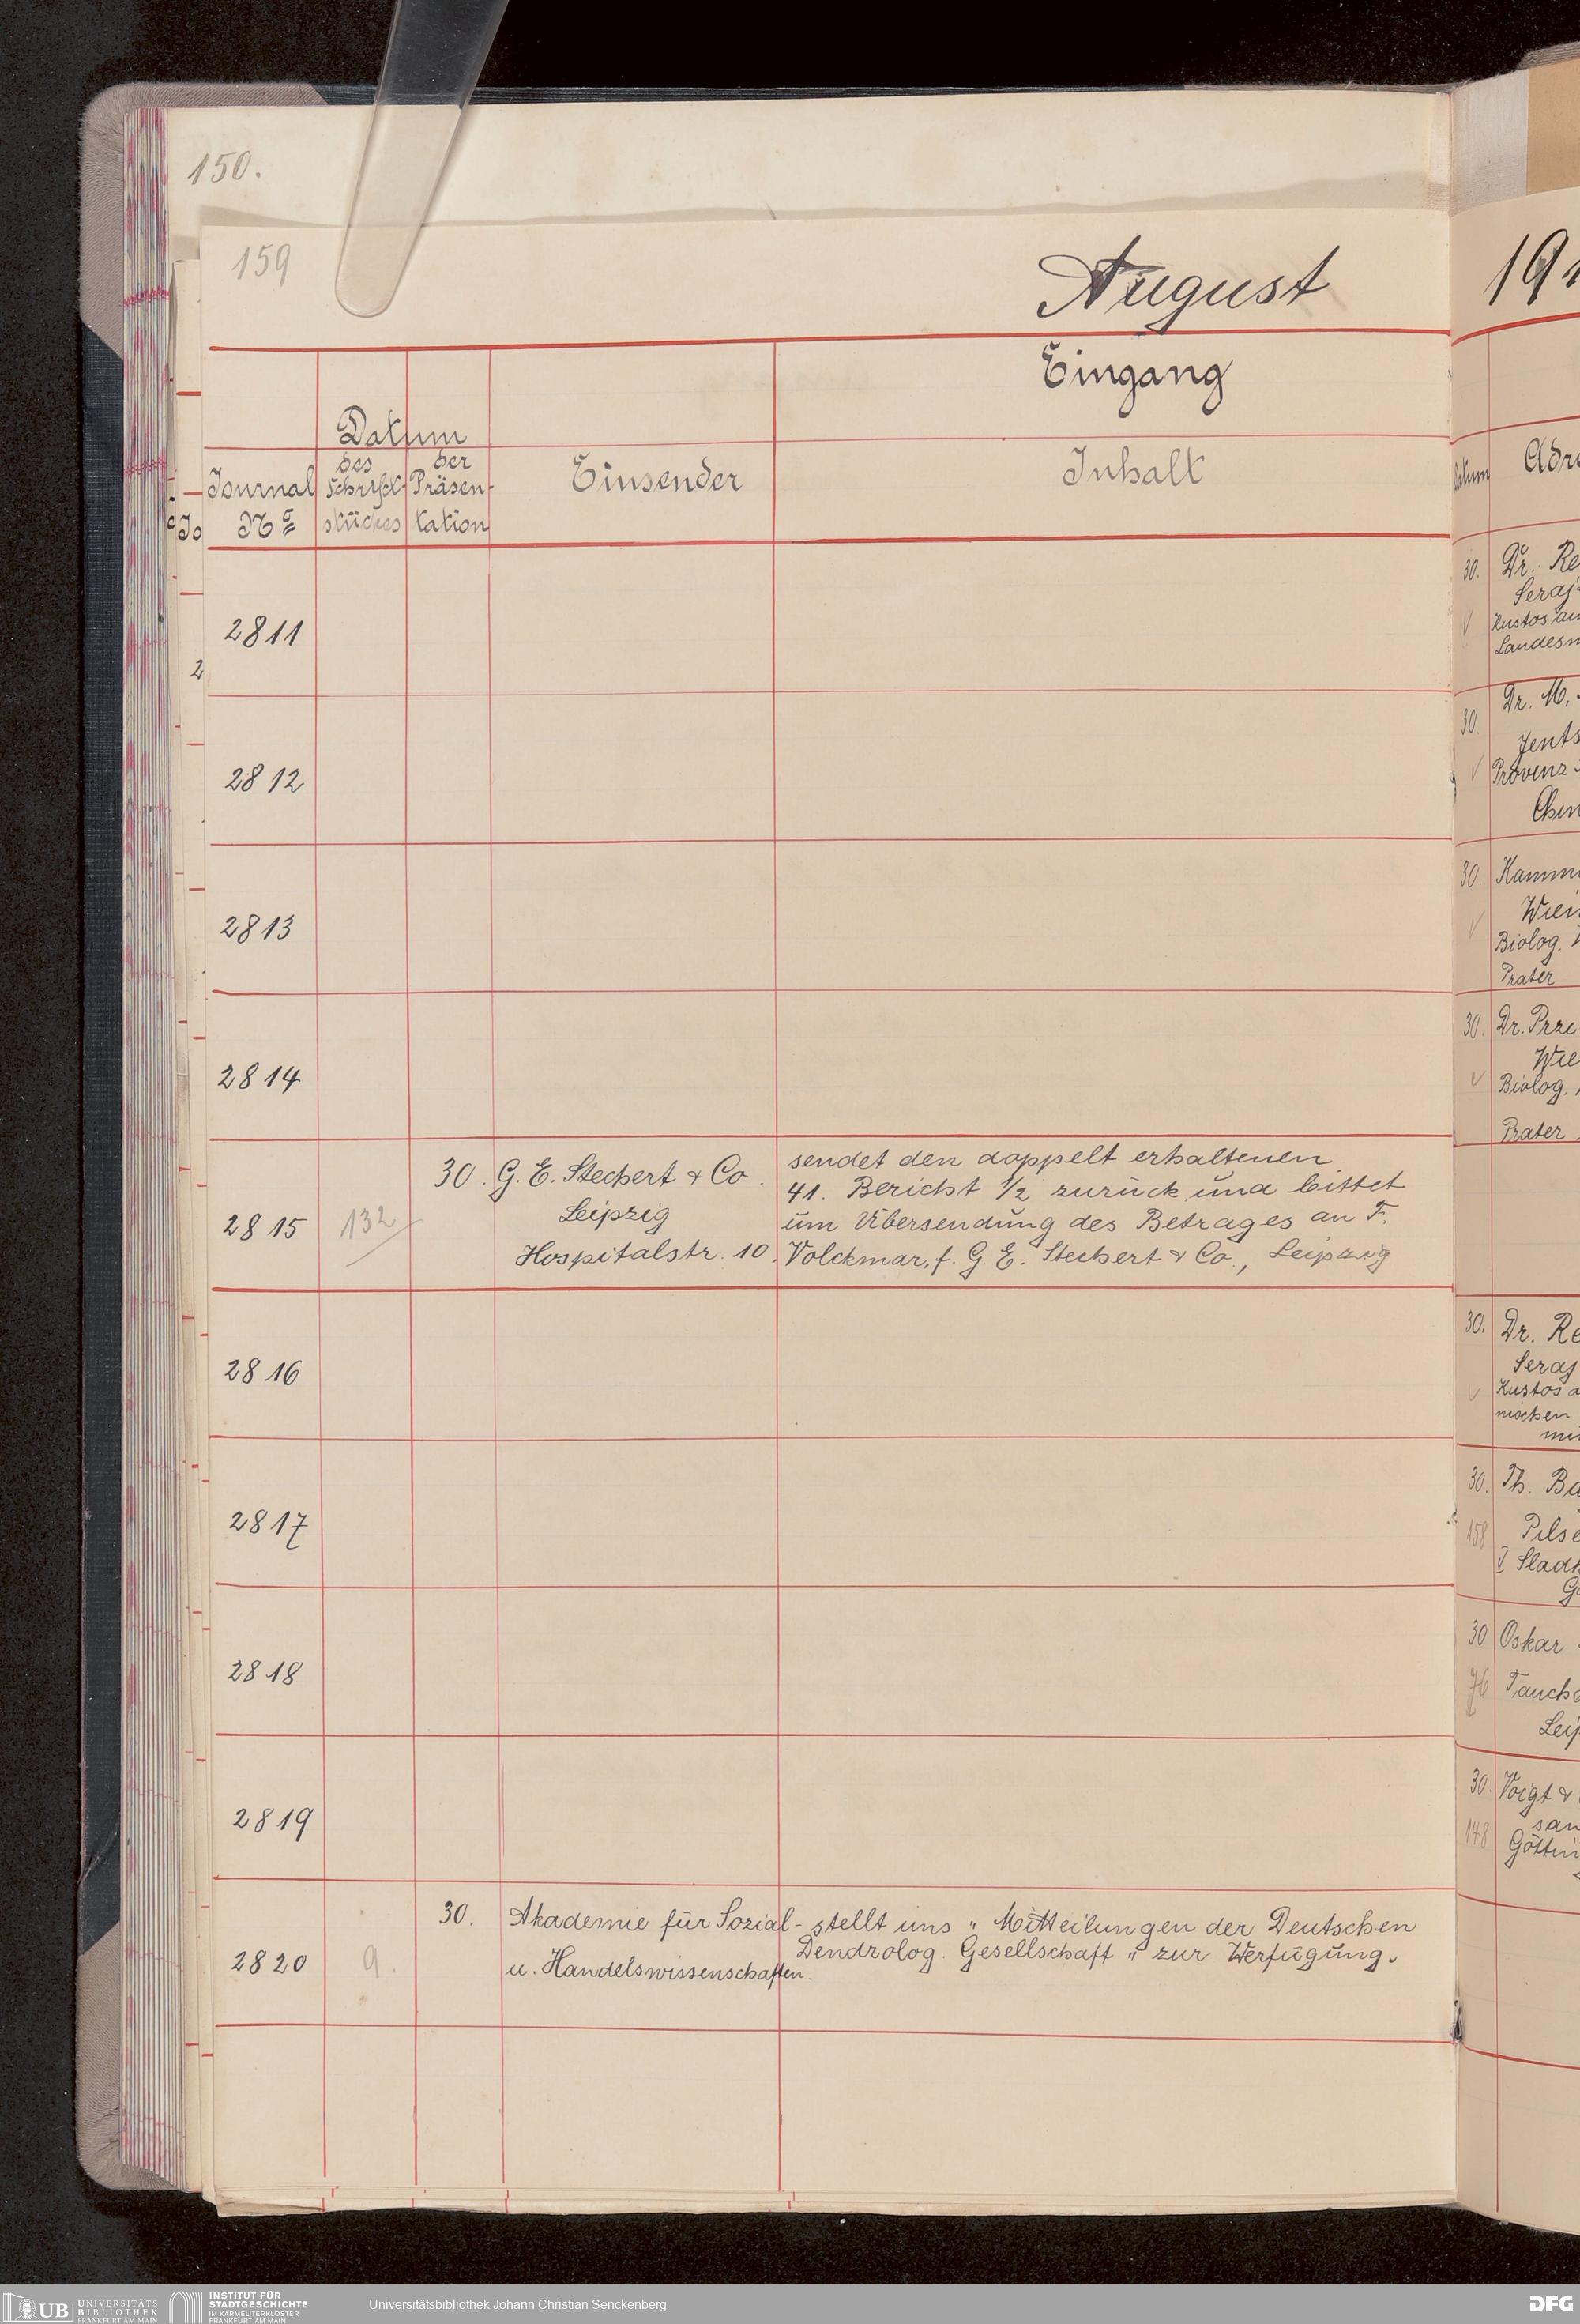 150.
159
August
Eingang
Datum
Journal
No
des
Schrift-
stückes
der
Präsen-
tation
Einsender
Inhalt
2811
2812
2813
2814
2815
132
30.
G. E. Stechert & Co.
Leipzig
Hospitalstr. 10.
sendet den doppelt erhaltenen
41. Bericht 1/2 zurück und bittet
um Übersendung des Betrages an F.
Volckmar, f. G. E. Stechert & Co., Leipzig
2816
2817
2818
2819
2820
9.
30.
Akademie für Sozial-
u. Handelswissenschaften.
stellt uns „Mitteilungen der Deutschen
Dendrolog. Gesellschaft" zur Verfügung.
2
Jo
191
30. Dr. Re
Seraj
Kustos am
Landesm
30. Dr. M.
Jents
Provenz
Chem
30. Kamm
Wien
Biolog.
Prater
30. Dr. Prze
Wie
Biolog.
Prater
30. Dr. Re
Seraj
Kustos a
nischen
30. Th. Ba
158 Pilse
30 Oskar
76 Taucha
Leip
30. Voigt &
148 Götting
UB UNIVERSITÄTS
BIBLIOTHEK
FRANKFURT AM MAIN
INSTITUT FÜR
STADTGESCHICHTE
IM KARMELITERKLOSTER
FRANKFURT AM MAIN
Universitätsbibliothek Johann Christian Senckenberg
DFG